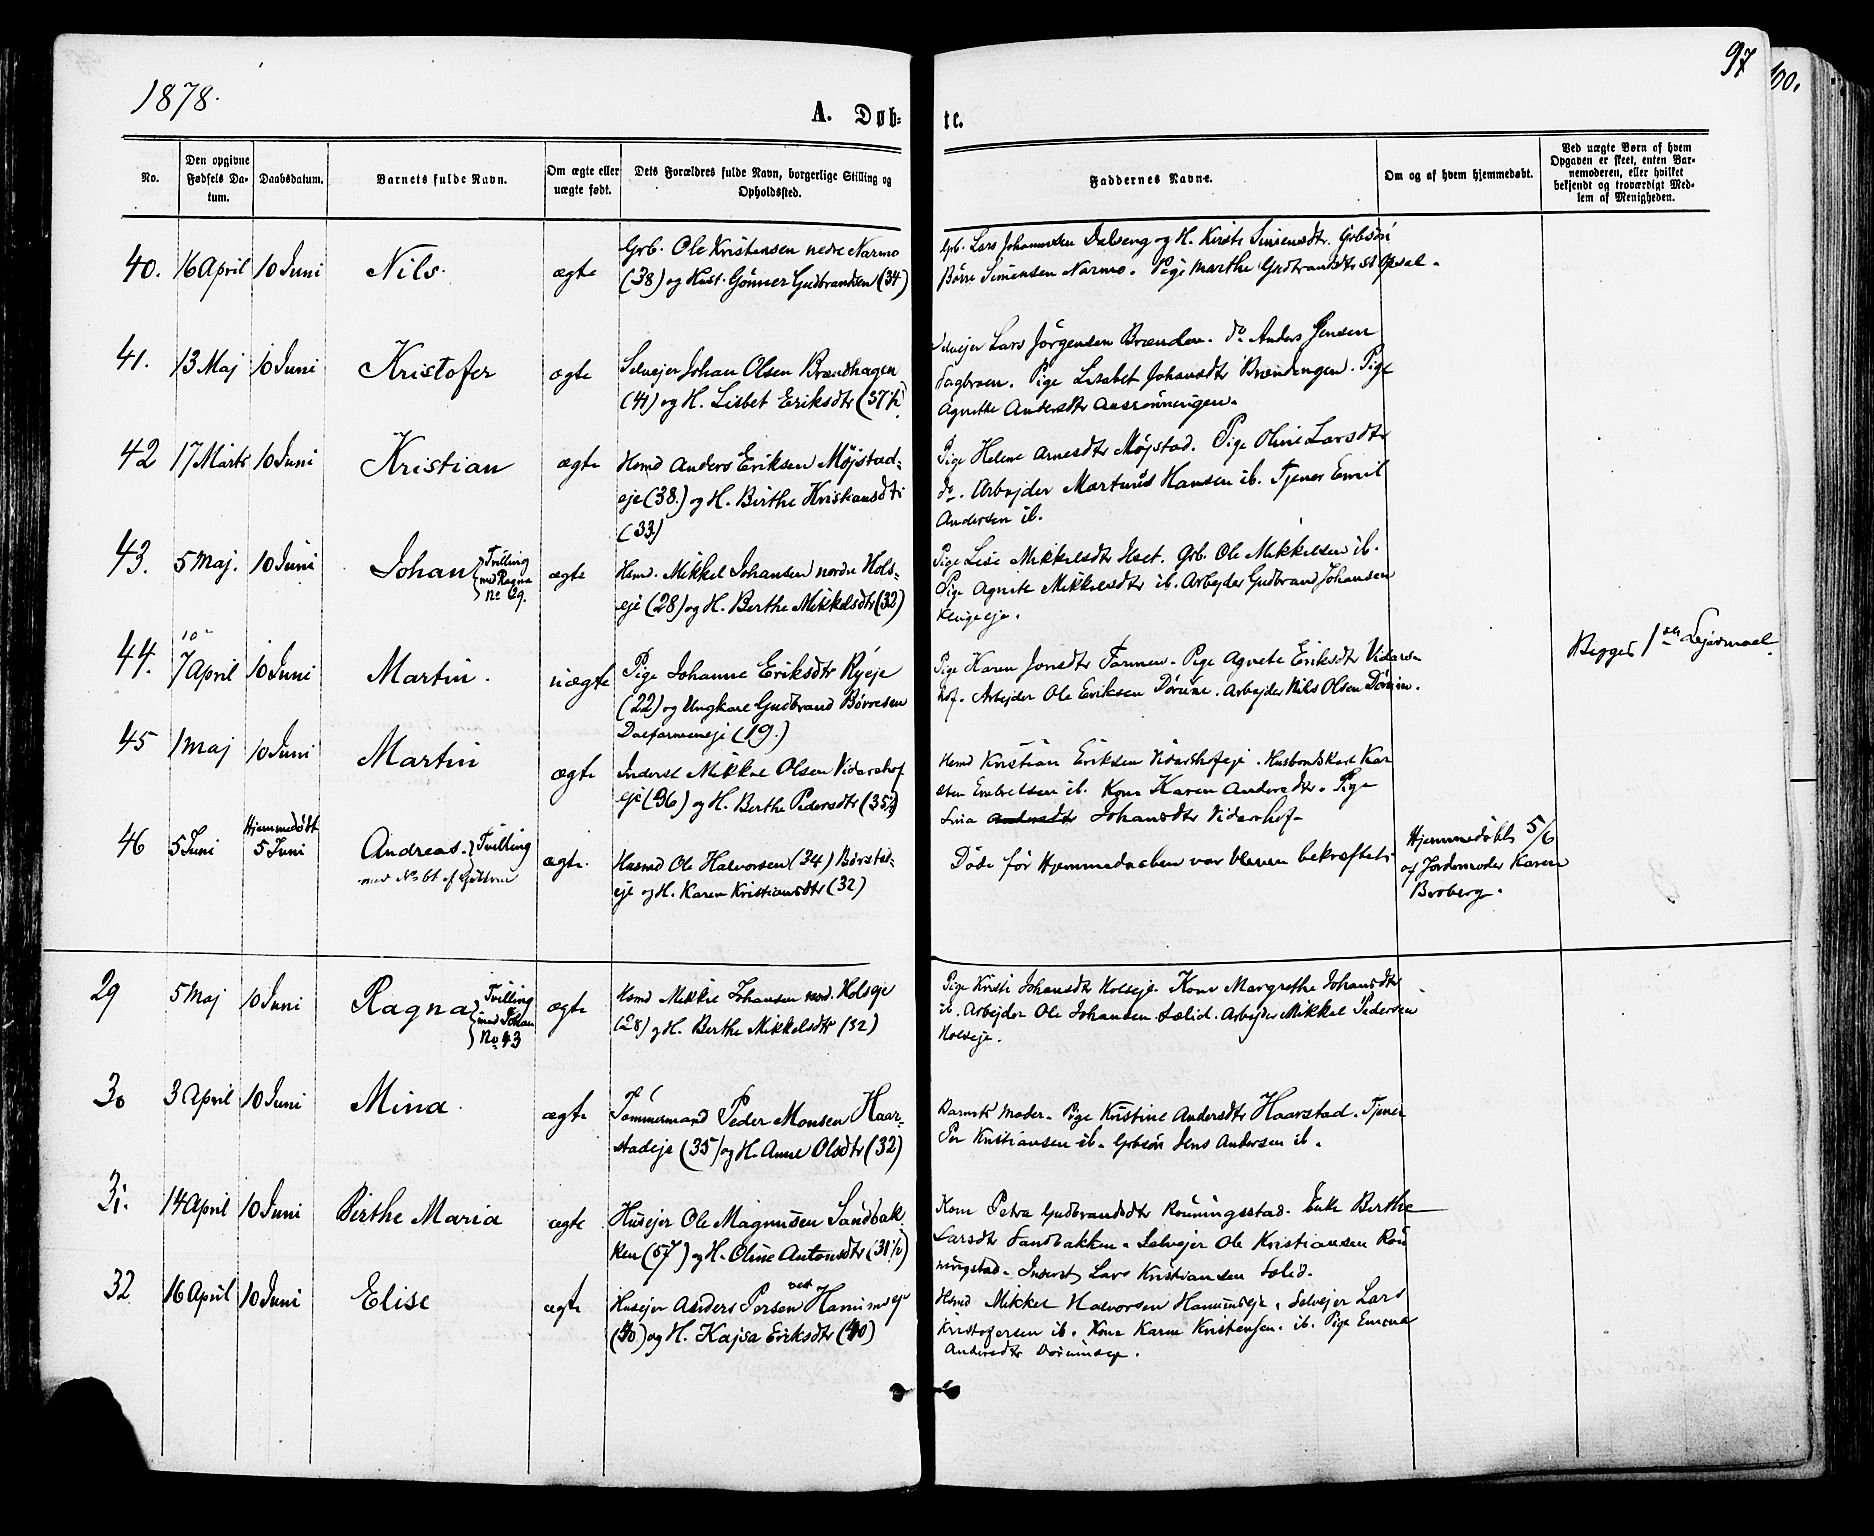 1878.
97
100.
A. Døb-
te.
No.
Den opgivne Fødsels Da-tum.
Daabsdatum.
Barnets fulde Navn.
Om ægte eller uægte født.
Dets Forældres fulde Navn, borgerlige Stilling og Opholdssted.
Faddernes Navne.
Om og af hvem hjemmedøbt.
Ved uægte Børn af hvem Opgaven er skeet, enten Bar-nemoderen, eller hvilket bekjendt og troværdigt Med-lem af Menigheden.
40. 16 April 10 Juni Nils. ægte
Grb. Ole Kristensen nedre Narmo
(38) og Hust. Gønner Gudbrandsen (34)
Grb. Lars Johannesen Dalseng og H. Kirsti Simensdtr. Grbsøn
Børre Simensen Narmo. Pige Marthe Gudbrandsdtr Opsal.
41. 13 Maj 10 Juni Kristofer ægte
Selvejer Johan Olsen Brændhagen
(41) og H. Lisbet Eriksdtr (37½)
Selvejer Lars Jørgensen Brænden. do Anders Jensen
Fagbroen. Pige Lisabet Johansdtr Brændengen. Pige
Agnethe Andersdtr
42 17 Marts 10 Juni Kristian ægte
Hsmd Anders Eriksen Møjstad-
eje (38.) og H. Birthe Kristiansdtr
(33)
Pige Helene Arnesdtr Møjstad. Pige Oline Larsdtr
do. Arbejder Martinus Hansen ib. Tjener Emil
Andersen ib.
43. 5 Maj. 10 Juni Johan Tvilling med Ragna No 29. ægte
Hsmd. Mikkel Johansen nordre Hols-
eje (28) og H. Berthe Mikkelsdtr (32)
Pige Lise Mikkelsdtr Ilset. Grb. Ole Mikkelsen ib.
Pige Agnete Mikkelsdtr ib. Arbejder Gudbrand Johansen
Klingeje.
44. 10 7 April 10 Juni Martin. uægte
Pige Johanne Eriksdtr Ryeje
(22) og Ungkarl Gudbrand Børresen
Dalfarmeneje (19.)
Pige Karen Jonsdtr Farmen. Pige Agnete Eriksdtr Vidars-
hof. Arbejder Ole Eriksen Dørum. Arbejder Nils Olsen Dørum.
Begges 1ste Lejermaal
45 1 Maj 10 Juni Martin ægte
Inderst Mikkel Olsen Vidarshof
eje (36) og H. Berthe Pedersdtr (35½)
Hsmd Kristian Eriksen Vidarshofeje. Husbondskarl Kar
sten Embretsen ib. Kone Karen Andersdtr. Pige
Lina Andersdtr Johansdtr Vidarshof.
46 5 Juni Hjemmedøbt 5 Juni Andreas. Tvilling ægte.
med No 61 af Kjøkvin
Husmd Ole Halvorsen (34) Børstad-
eje og H. Karen Kristiansdtr (32)
Døde før Hjemmedaaben var bleven bekræftet.
Hjemmedøbt 5/6
af Jordemoder Karen
Broberg.
29 5 Maj 10 Juni Ragna Tvilling med Johan No 43 ægte
Hsmd Mikkel Johansen nord. Holseje
(28) og H. Berthe Mikkelsdtr (32)
Pige Kristi Johansdtr Holseje. Kone Margrethe Johansdtr
ib. Arbejder Ole Johansen Sælid. Arbejder Mikkel Pedersen
Holseje.
30 3 April 10 Juni Mina. ægte
Tømmermand Peder Monsen Haar-
stadeje (35) og H. Anne Olsdtr (32)
Barnets Moder. Pige Kristine Andersdtr Haarstad. Tjener
Per Kristiansen ib. Grbsøn Jens Andersen ib.
31. 14 April 10 Juni Birthe Maria ægte
Husejer Ole Magnusen Sandbak-
ken (57) og H. Oline Antonsdtr (31½)
Kone Petra Gudbrandsdtr Rønningsstad. Enke Berthe
Larsdtr Sandbakken. Selvejer Ole Kristiansen Røn
ningstad. Inderst Lars Kristiansen Sælid.
32 16 April 10 Juni Elise ægte
Husejer Anders Persen ved Hammeneje
(40) og H. Kajsa Eriksdtr (40)
Hsmd Mikkel Halvorsen Hammeneje. Selvejer Lars
Kristofersen ib. Kone Karen Kristensen. ib. Pige Emma
Andersdtr Dørumseje.